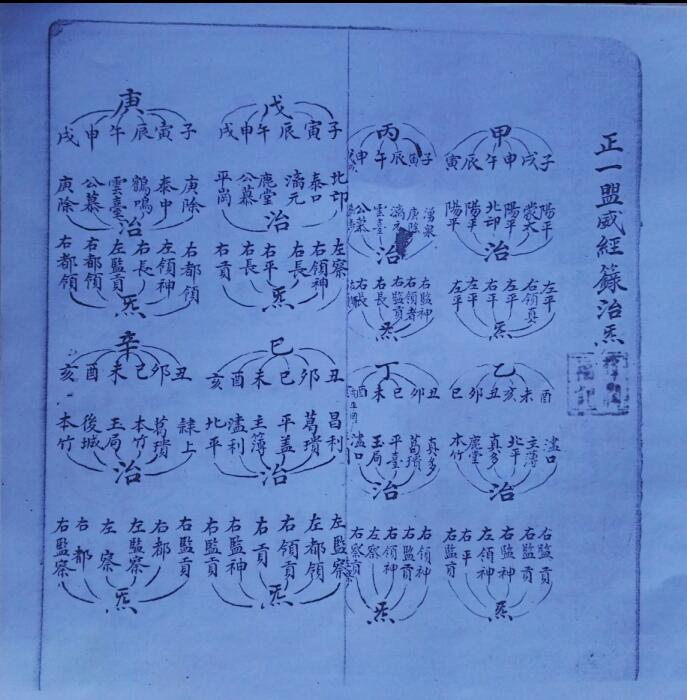 正一盟威經籙治炁
甲
子戌申午辰寅
陽平 蒙大 陽平 北邙 陽平 陽平
治
左平 右領真 左平 右平 左平 左平
炁
丙
子寅辰午申
湧泉 庚除 漓元 雲臺 公慕
治
右監神 右領者 右監貢 右長
炁
戊
子寅辰午申戌
北邙 泰口 漓元 鹿堂 公慕 平岡
治
左察 右領神 右長 右平 右長 右貢
炁
庚
子寅辰午申戌
庚除 泰中 鶴鳴 雲臺 公慕 庚除
治
右都領 左領神 右長 左監貢 右都領 右都領
炁
乙
酉未亥丑卯巳
濜口 主薄 北平 真多 鹿堂 本竹
治
右監貢 右監神 左領神 右平 右監貢
炁
丁
丑卯巳未酉
真多 葛璝 平臺 玉局 濜口
治
右領神 右監貢 右領神 左察 右察貢
炁
巳
丑卯巳未酉亥
昌利 葛璝 平盖 主簿 濜利 北平
治
左監察 左都領 右領貢 右貢 右監神 右監貢
炁
辛
丑卯巳未酉亥
隸上 葛璝 本竹 玉局 後城 本竹
治
右監貢 右都 左監察 左察 右都 右監察
炁